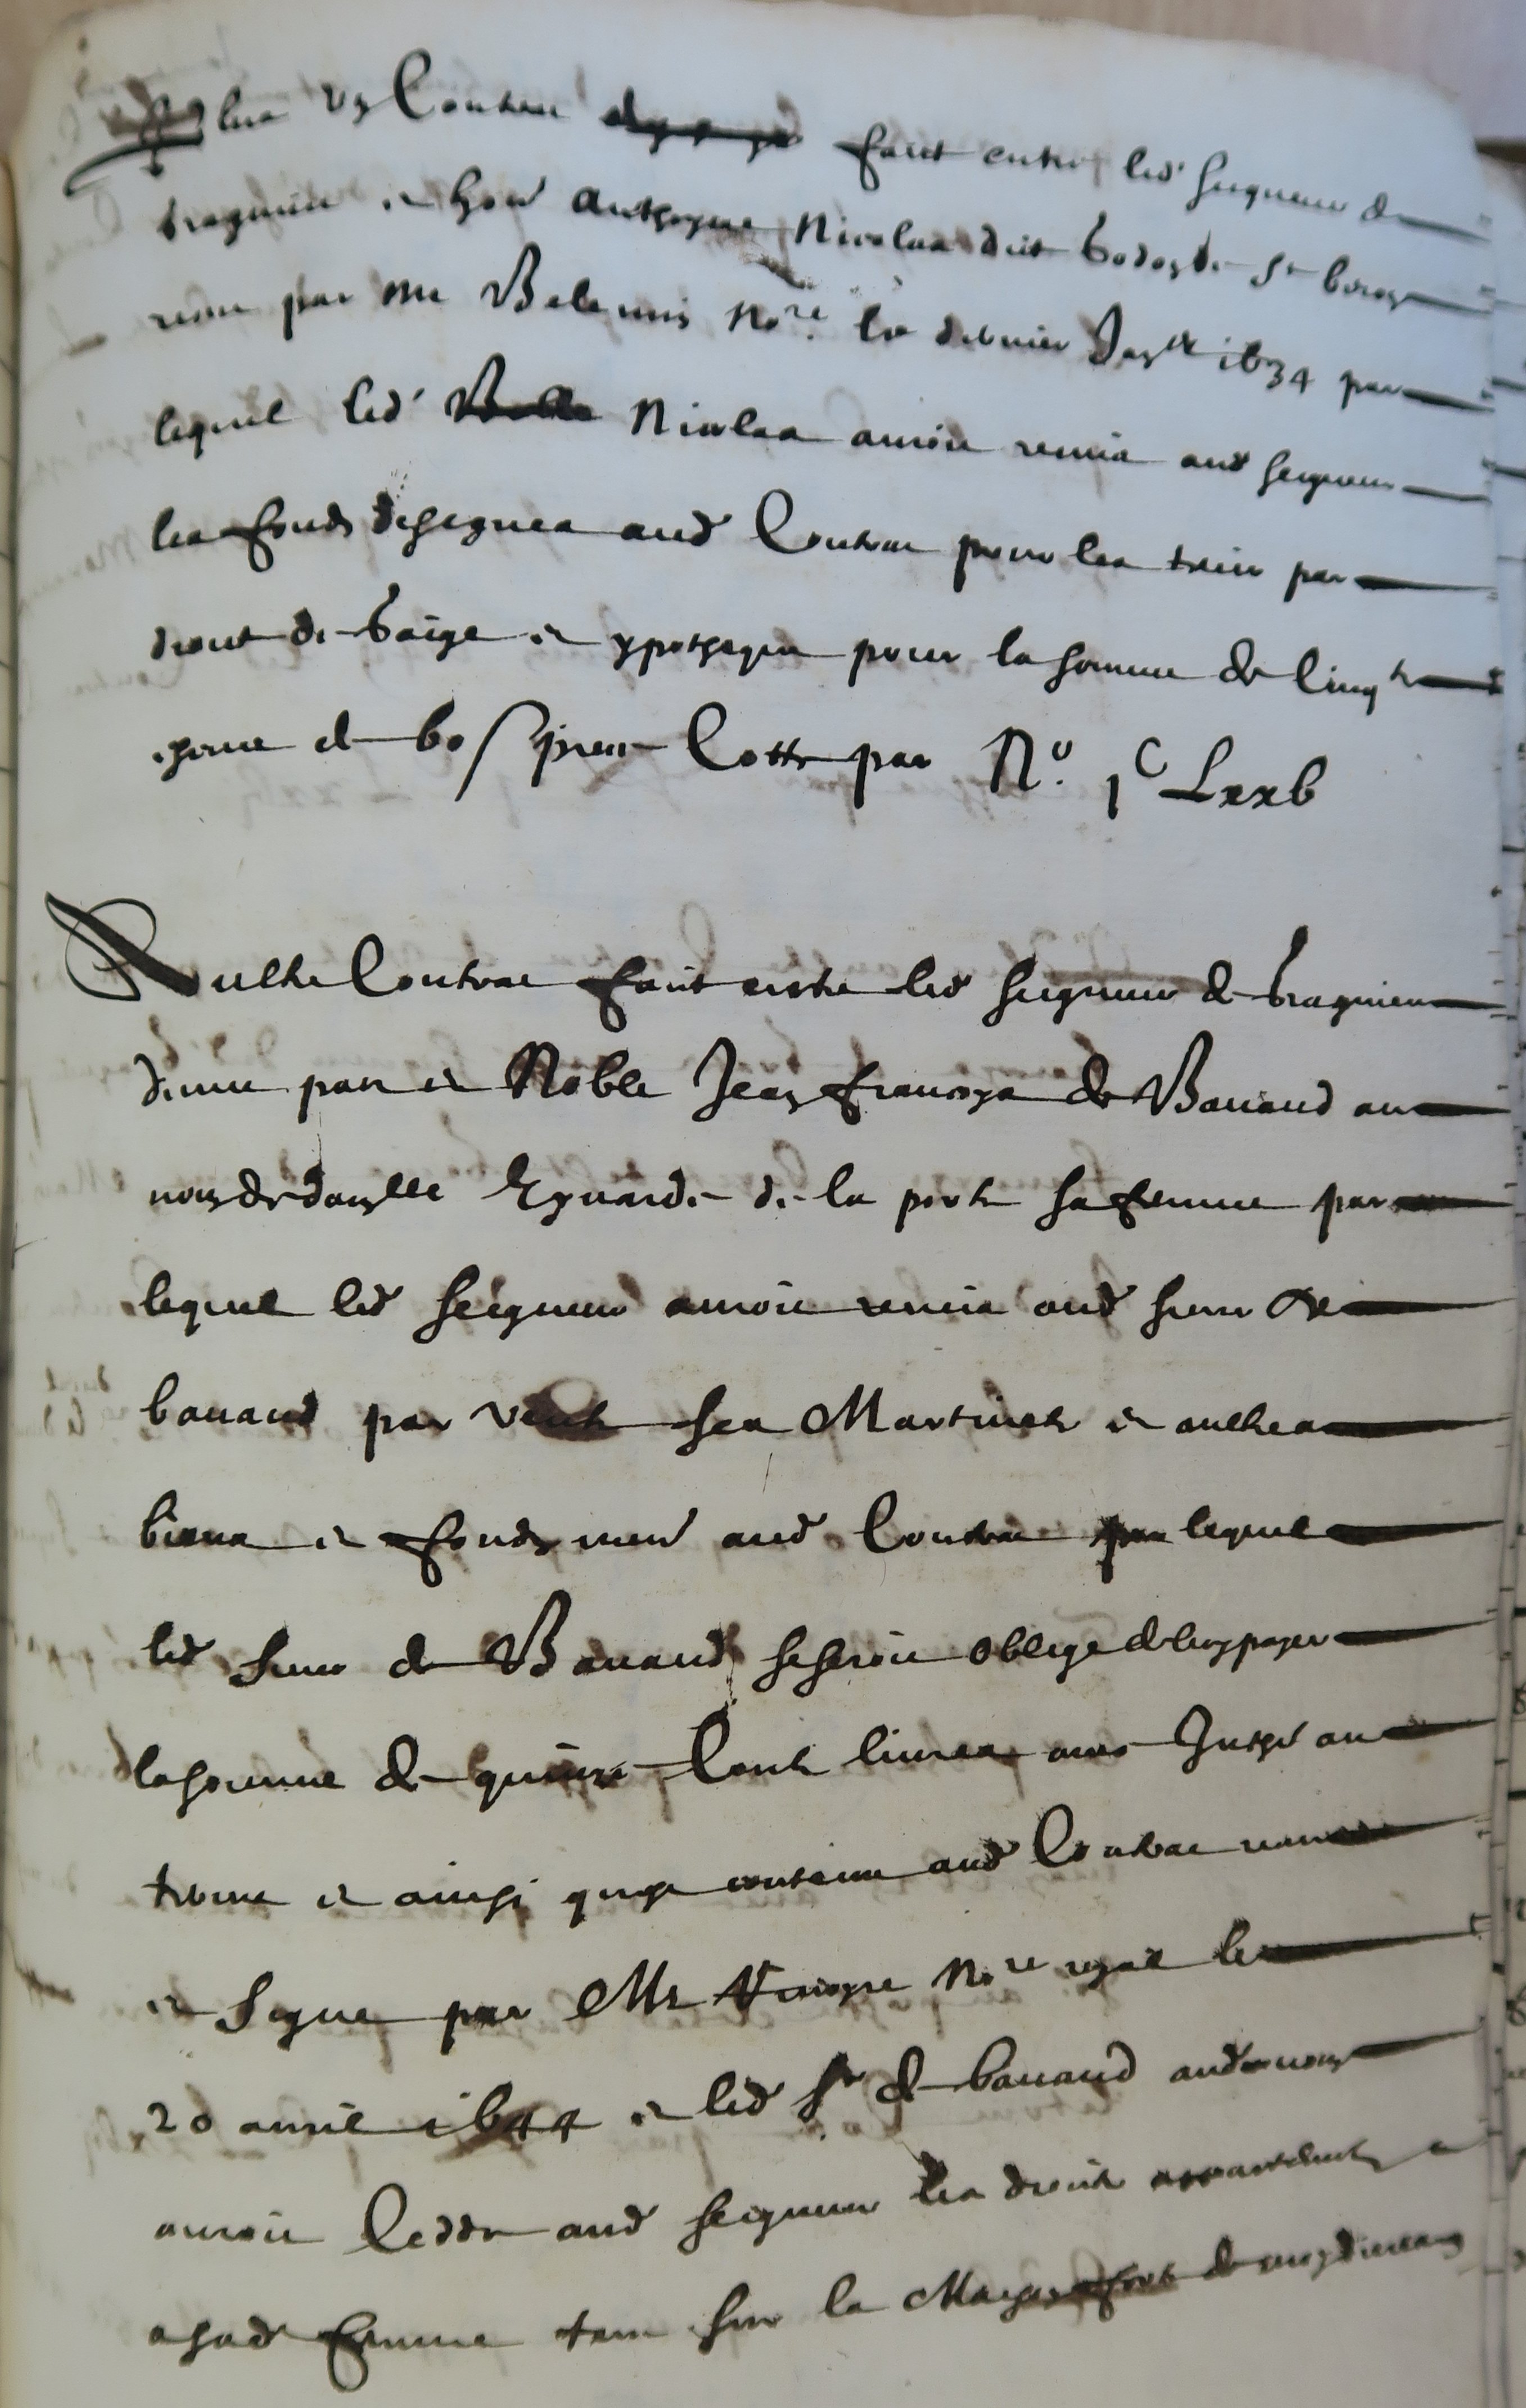 Plus un Contrau faict entre led seigneur de
bragnieu et hon^e Anthoyne Nicolas dict bodoz de St
receu par me Belemis no^re le dernier 1634 par
lequel led Nicolas auroit remis aud seigneur
les fonds designes aud Contrau pour les tenir par
droict de gaige et ypotheque pour la somme de Cinq^te
et 60 s Cotte par N^o 1^C Lxxb
Aultre Contrau faict entre led seigneur de bragnieu
dune part et Noble Jean francoys de Bauaud au
nom de dam^lle de la porte sa femme par
lequel led seigneur auroit remis aud sieur de
bauaud par vente ses Martinets et aultres
biens et fonds men^es aud Contrau par lequel
led sieur de Bauaud se seroit oblige de luy payer
la somme de quinze Cents liures au
terme et ainsi quest contenu aud Contrau receu
et signe par Me no^re royal le
20 auril 1644 et led s^r de bauaud aud nom
auroit Cedde aud seigneur les droicts appartenants
a sad femme tant sur la Mayson forte de